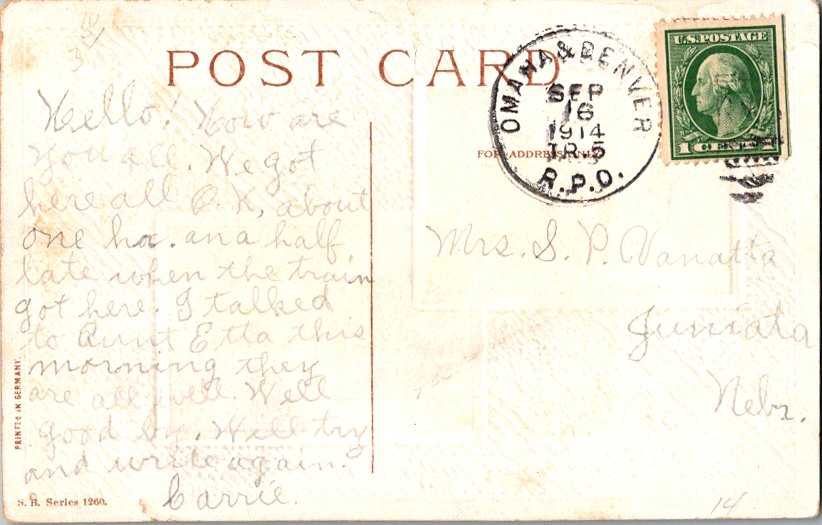 POST CARD
OMAHA & DENVER
SEP
16
1914
TR 5
R.P.O.
U.S. POSTAGE
1 CENT 1
Hello! How are
you all. We got
here all O.K, about
one hr. an a half
late when the train
got here. I talked
to Aunt Etta this
morning they
are all well. Well
good by. Will try
and write again.
Carrie.
Mrs. S. P. Vanatta
Juniata
Nebr.
14
PRINTED IN GERMANY
S. B. Series 1260.